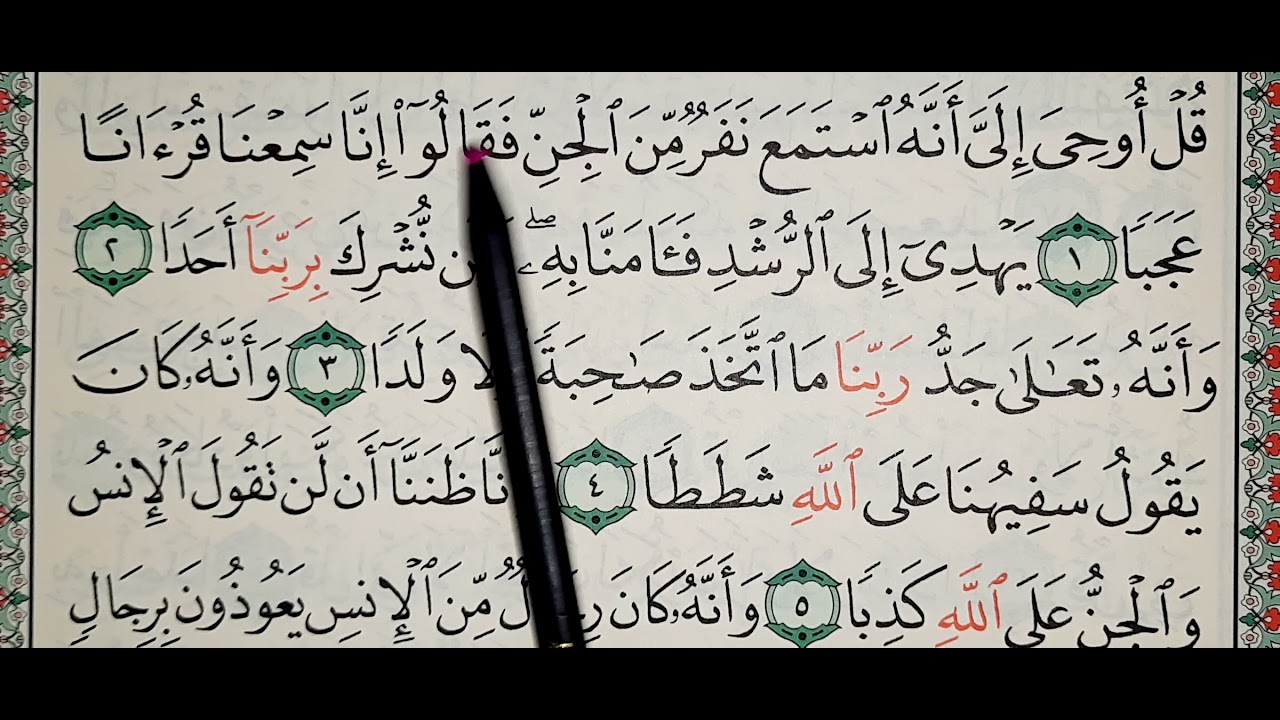 قُلْ أُوحِىَ إِلَىَّ أَنَّهُ ٱسْتَمَعَ نَفَرٌ مِّنَ ٱلْجِنِّ فَقَالُوٓا۟ إِنَّا سَمِعْنَا قُرْءَانًا
عَجَبًا ١ يَهْدِىٓ إِلَى ٱلرُّشْدِ فَـَٔامَنَّا بِهِۦ ۖ نُّشْرِكَ بِرَبِّنَآ أَحَدًا ٢
وَأَنَّهُۥ تَعَـٰلَىٰ جَدُّ رَبِّنَا مَا ٱتَّخَذَ صَـٰحِبَةً وَلَدًا ٣ وَأَنَّهُۥ كَانَ
يَقُولُ سَفِيهُنَا عَلَى ٱللَّهِ شَطَطًا ٤ ظَنَنَّآ أَن لَّن تَقُولَ ٱلْإِنسُ
وَٱلْجِنُّ عَلَى ٱللَّهِ كَذِبًا ٥ وَأَنَّهُۥ كَانَ مِّنَ ٱلْإِنسِ يَعُوذُونَ بِرِجَالٍ